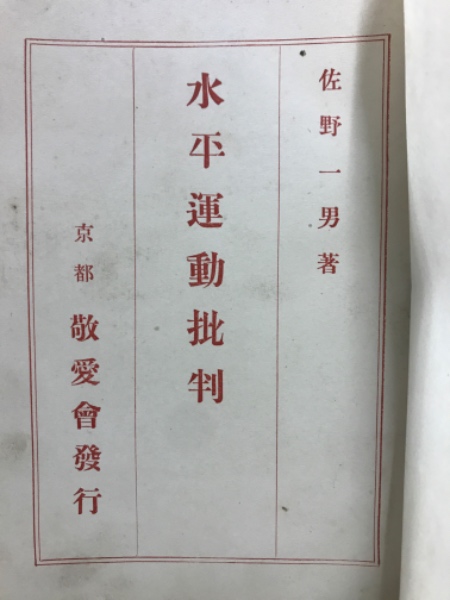 佐野一男著
水平運動批判
京都 敬愛會發行